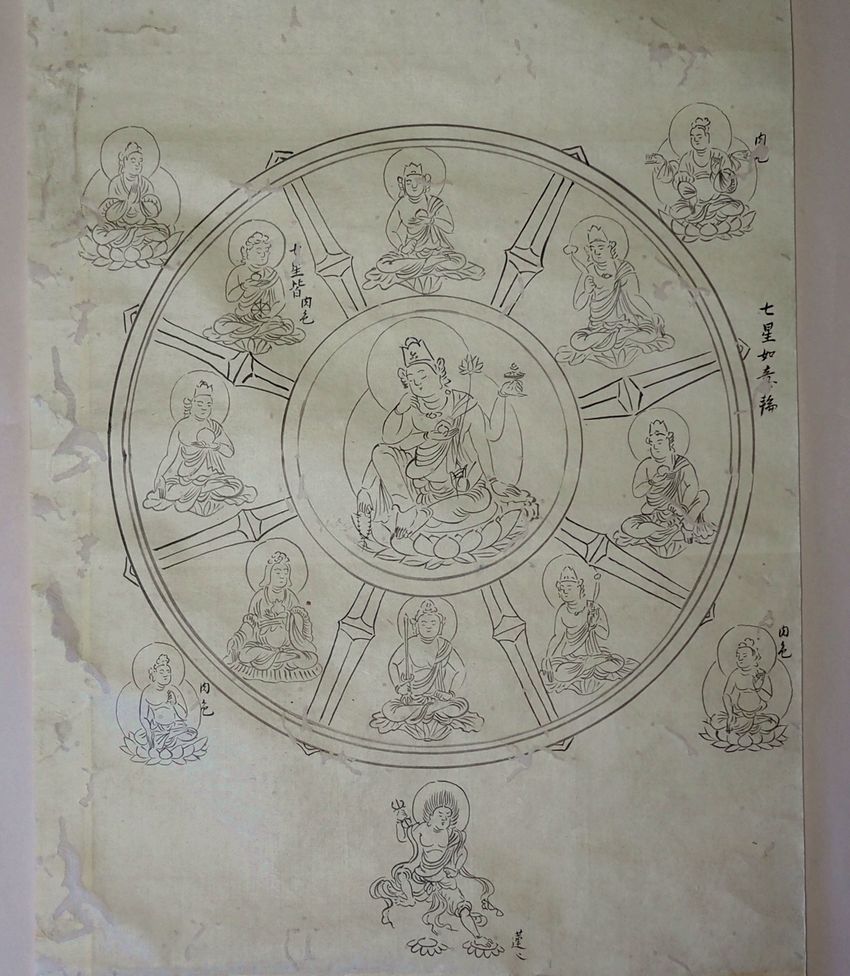 七星如意輪
肉色
七星皆
肉色
肉色
肉色
蓮〻